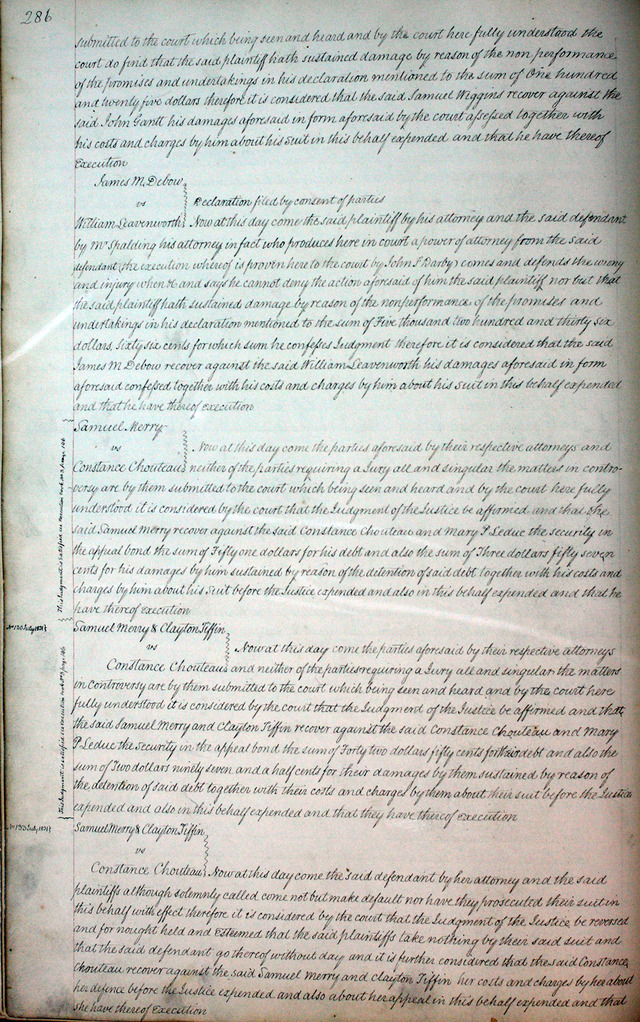 286
submitted to the court which being seen and heard and by the court here fully understood the
court do find that the said plaintiff hath sustained damage by reason of the non performance
of the promises and undertakings in his declaration mentioned to the sum of One hundred
and twenty five dollars therefore it is considered that the said Samuel Wiggins recover against the
said John Gantt his damages aforesaid in form aforesaid by the court assessed together with
his costs and charges by him about his suit in this behalf expended and that he have thereof
Execution
James M. Debow
vs Declaration filed by consent of parties
William Leavenworth Now at this day come the said plaintiff by his attorney and the said defendant
by Mr Spalding his attorney in fact who produces here in court a power of attorney from the said
defendant (the execution whereof is proven here to the court by John S Darby) comes and defends the wrong
and injury when &c and says he cannot deny the action aforesaid of him the said plaintiff nor but that
the said plaintiff hath sustained damage by reason of the nonperformance of the promises and
undertakings in his declaration mentioned to the sum of Five thousand two hundred and thirty six
dollars, sixty six cents for which sum he confesses Judgment therefore it is considered that the said
James M. Debow recover against the said William Leavenworth his damages aforesaid in form
aforesaid confessed together with his costs and charges by him about his suit in this behalf expended
and that he have thereof execution
Samuel Merry
vs Now at this day come the parties aforesaid by their respective attorneys and
Constance Chouteau neither of the parties requiring a Jury all and singular the matters in contro-
versy are by them submitted to the court which being seen and heard and by the court here fully
understood it is considered by the court that the Judgment of the Justice be affirmed and that the
said Samuel Merry recover against the said Constance Chouteau and Mary P Leduc the security in
the appeal bond the sum of Fifty one dollars for his debt and also the sum of Three dollars fifty seven
cents for his damages by him sustained by reason of the detention of said debt together with his costs and
charges by him about his suit before the Justice expended and also in this behalf expended and that he
have thereof execution
Samuel Merry & Clayton Tiffin
vs Now at this day come the parties aforesaid by their respective attorneys
Constance Chouteau and neither of the parties requiring a Jury all and singular the matters
in controversy are by them submitted to the court which being seen and heard and by the court here
fully understood it is considered by the court that the Judgment of the Justice be affirmed and that
the said Samuel Merry and Clayton Tiffin recover against the said Constance Chouteau and Mary
P Leduc the Security in the appeal bond the sum of Forty two dollars fifty cents for their debt and also the
sum of Two dollars ninety seven and a half cents for their damages by them sustained by reason of
the detention of said debt together with their costs and charges by them about their suit before the Justice
expended and also in this behalf expended and that they have thereof execution
Samuel Merry & Clayton Tiffin
vs
Constance Chouteau Now at this day come the said defendant by her attorney and the said
plaintiffs although solemnly called come not but make default nor have they prosecuted their suit in
this behalf with effect therefore it is considered by the court that the Judgment of the Justice be reversed
and for nought held and Esteemed that the said plaintiffs take nothing by their said suit and
that the said defendant go thereof without day and it is further considered that the said Constance
Chouteau recover against the said Samuel Merry and Clayton Tiffin her costs and charges by her about
her defence before the Justice expended and also about her appeal in this behalf expended and that
she have thereof Execution